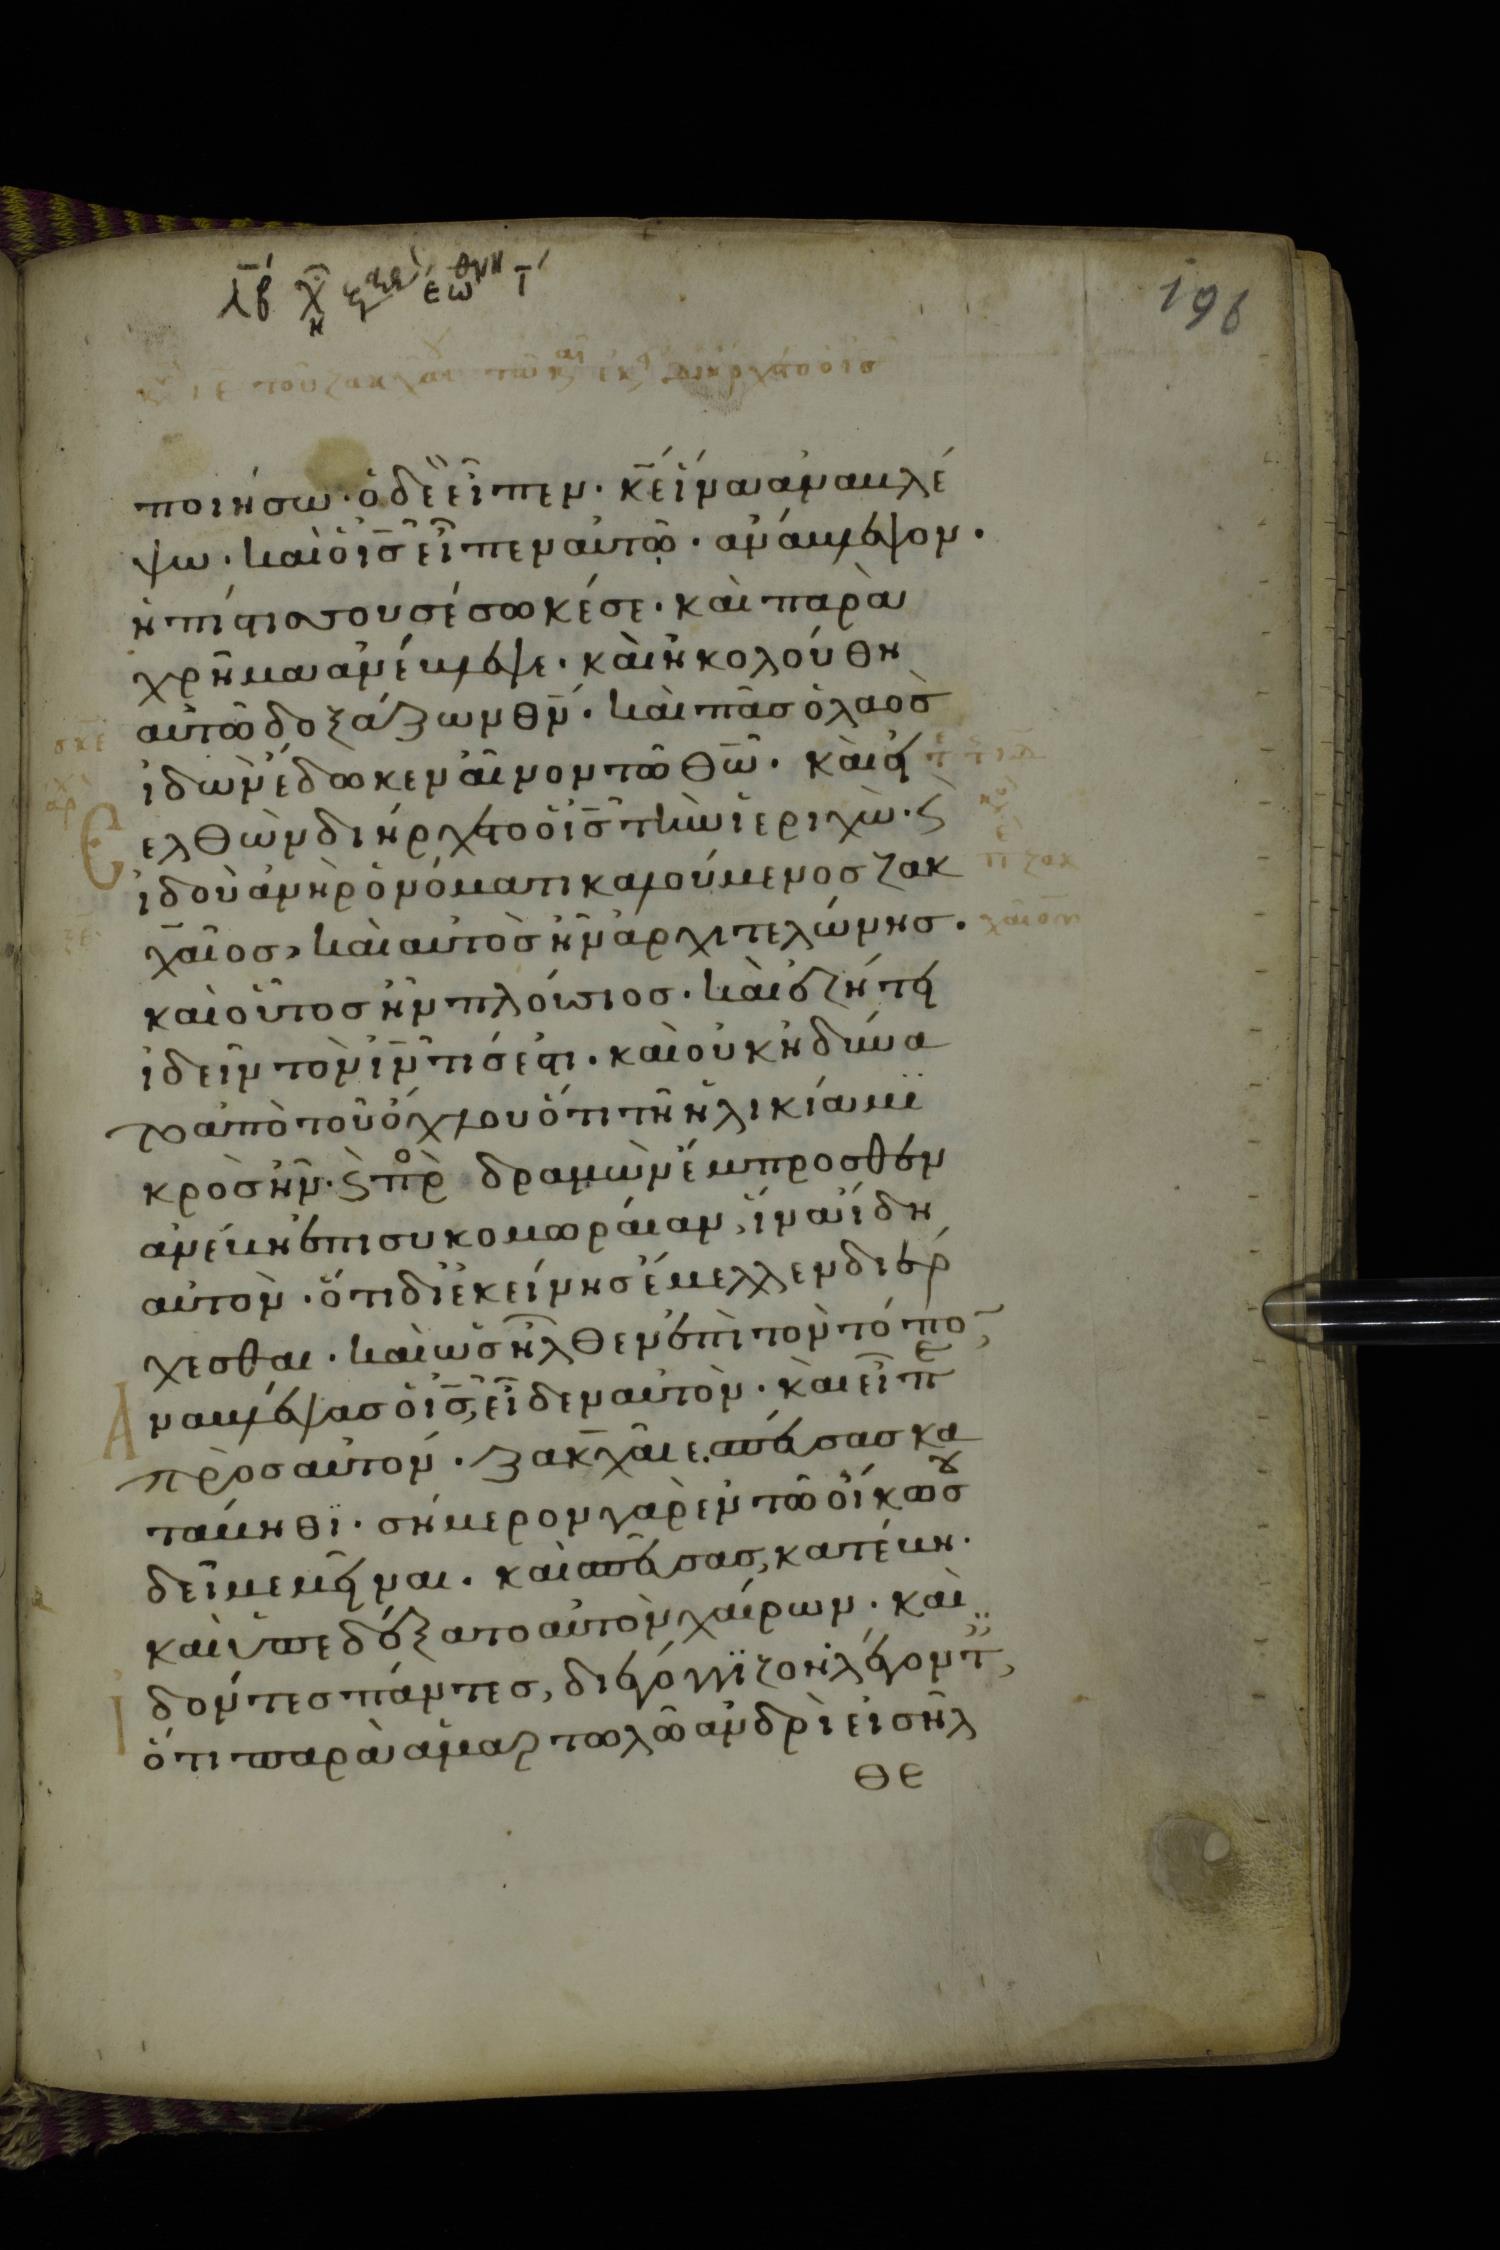 196
ποιήσω· ὁ δὲ εἶπεν· κ̅ε̅ ἵνα ἀναβλέ
ψω· καὶ ὁ ι̅ς̅ εἶπεν αὐτῷ· ἀνάβλεψον·
ἡ πίστις σου σέσωκέ σε· καὶ παρὰ
χρῆμα ἀνέβλεψε· καὶ ἠκολούθη
αὐτῶ δοξάζων θ̅ν̅· καὶ πᾶς ὁ λαὸς
ἰδὼν ἔδωκεν αἶνον τῶ θ̅ω̅· καὶ εἰ
ελθὼν διήρχετο ὁ ι̅ς̅ τὴν ἱεριχὼ· ϛ
ἰδοὺ ἀνὴρ ὀνόματι καλούμενος ζακ
χαῖος, καὶ αὐτὸς ἦν ἀρχιτελώνης·
καὶ οὗτος ἦν πλούσιος· καὶ ἐζήτει
ἰδεῖν τὸν ι̅ν̅ τίς ἐστι· καὶ οὐκ ἠδύνα
το ἀπὸ τοῦ ὄχλου ὅτι τῆ ἡλικία μϊ
κρὸς ἦν· ϛ πρὸ δραμὼν ἔμπροσθεν
ἀνέβη ἐπι συκομωραίαν, ἵνα ἴδη
αὐτὸν· ὅτι δι ἐκείνης ἔμελλεν διέρ
χεσθαι· καὶ ὡς ἦλθεν ἐπὶ τὸν τόπο
ναβλέψας ὁ ι̅ς̅, εἶδεν αὐτὸν· καὶ εἶπε
πρὸς αὐτόν· ζακχαῖε. σπεύσας κα
τάβηθϊ· σήμερον γὰρ ἐν τῶ οἴκω σου
δεῖ με μεῖναι· καὶ σπεύσας, κατέβη·
καὶ ὑπεδέξατο αὐτὸν χαίρων· καὶ
δόντες πάντες, διεγόγγϊζον λέγοντ
ὅτι παρὰ ἁμαρτωλῶ ἀνδρὶ εἰσῆλ
θε